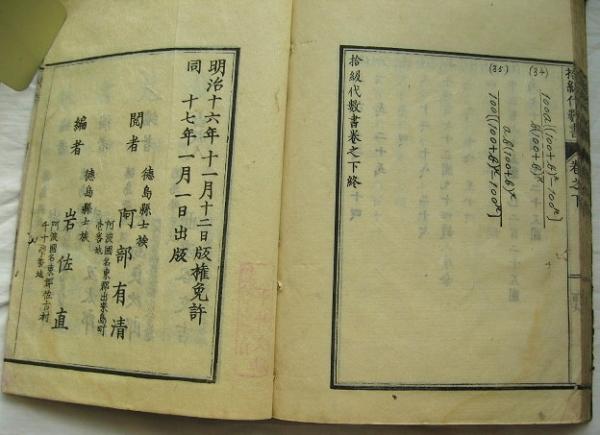 拾級代数書 卷之下
(34) 100a{(100+b)ⁿ-100ⁿ} / b(100+b)ⁿ
(35) a.b(100+b)ⁿ / 100{(100+b)ⁿ-100ⁿ}
拾級代数書卷之下終
明治十六年十一月十二日版權免許
同 十七年一月一日出版
閲者 徳島縣士族 阿部有清
阿波國名東郡出来島町
編者 徳島縣士族 岩佐直
阿波國名東郡佐古村